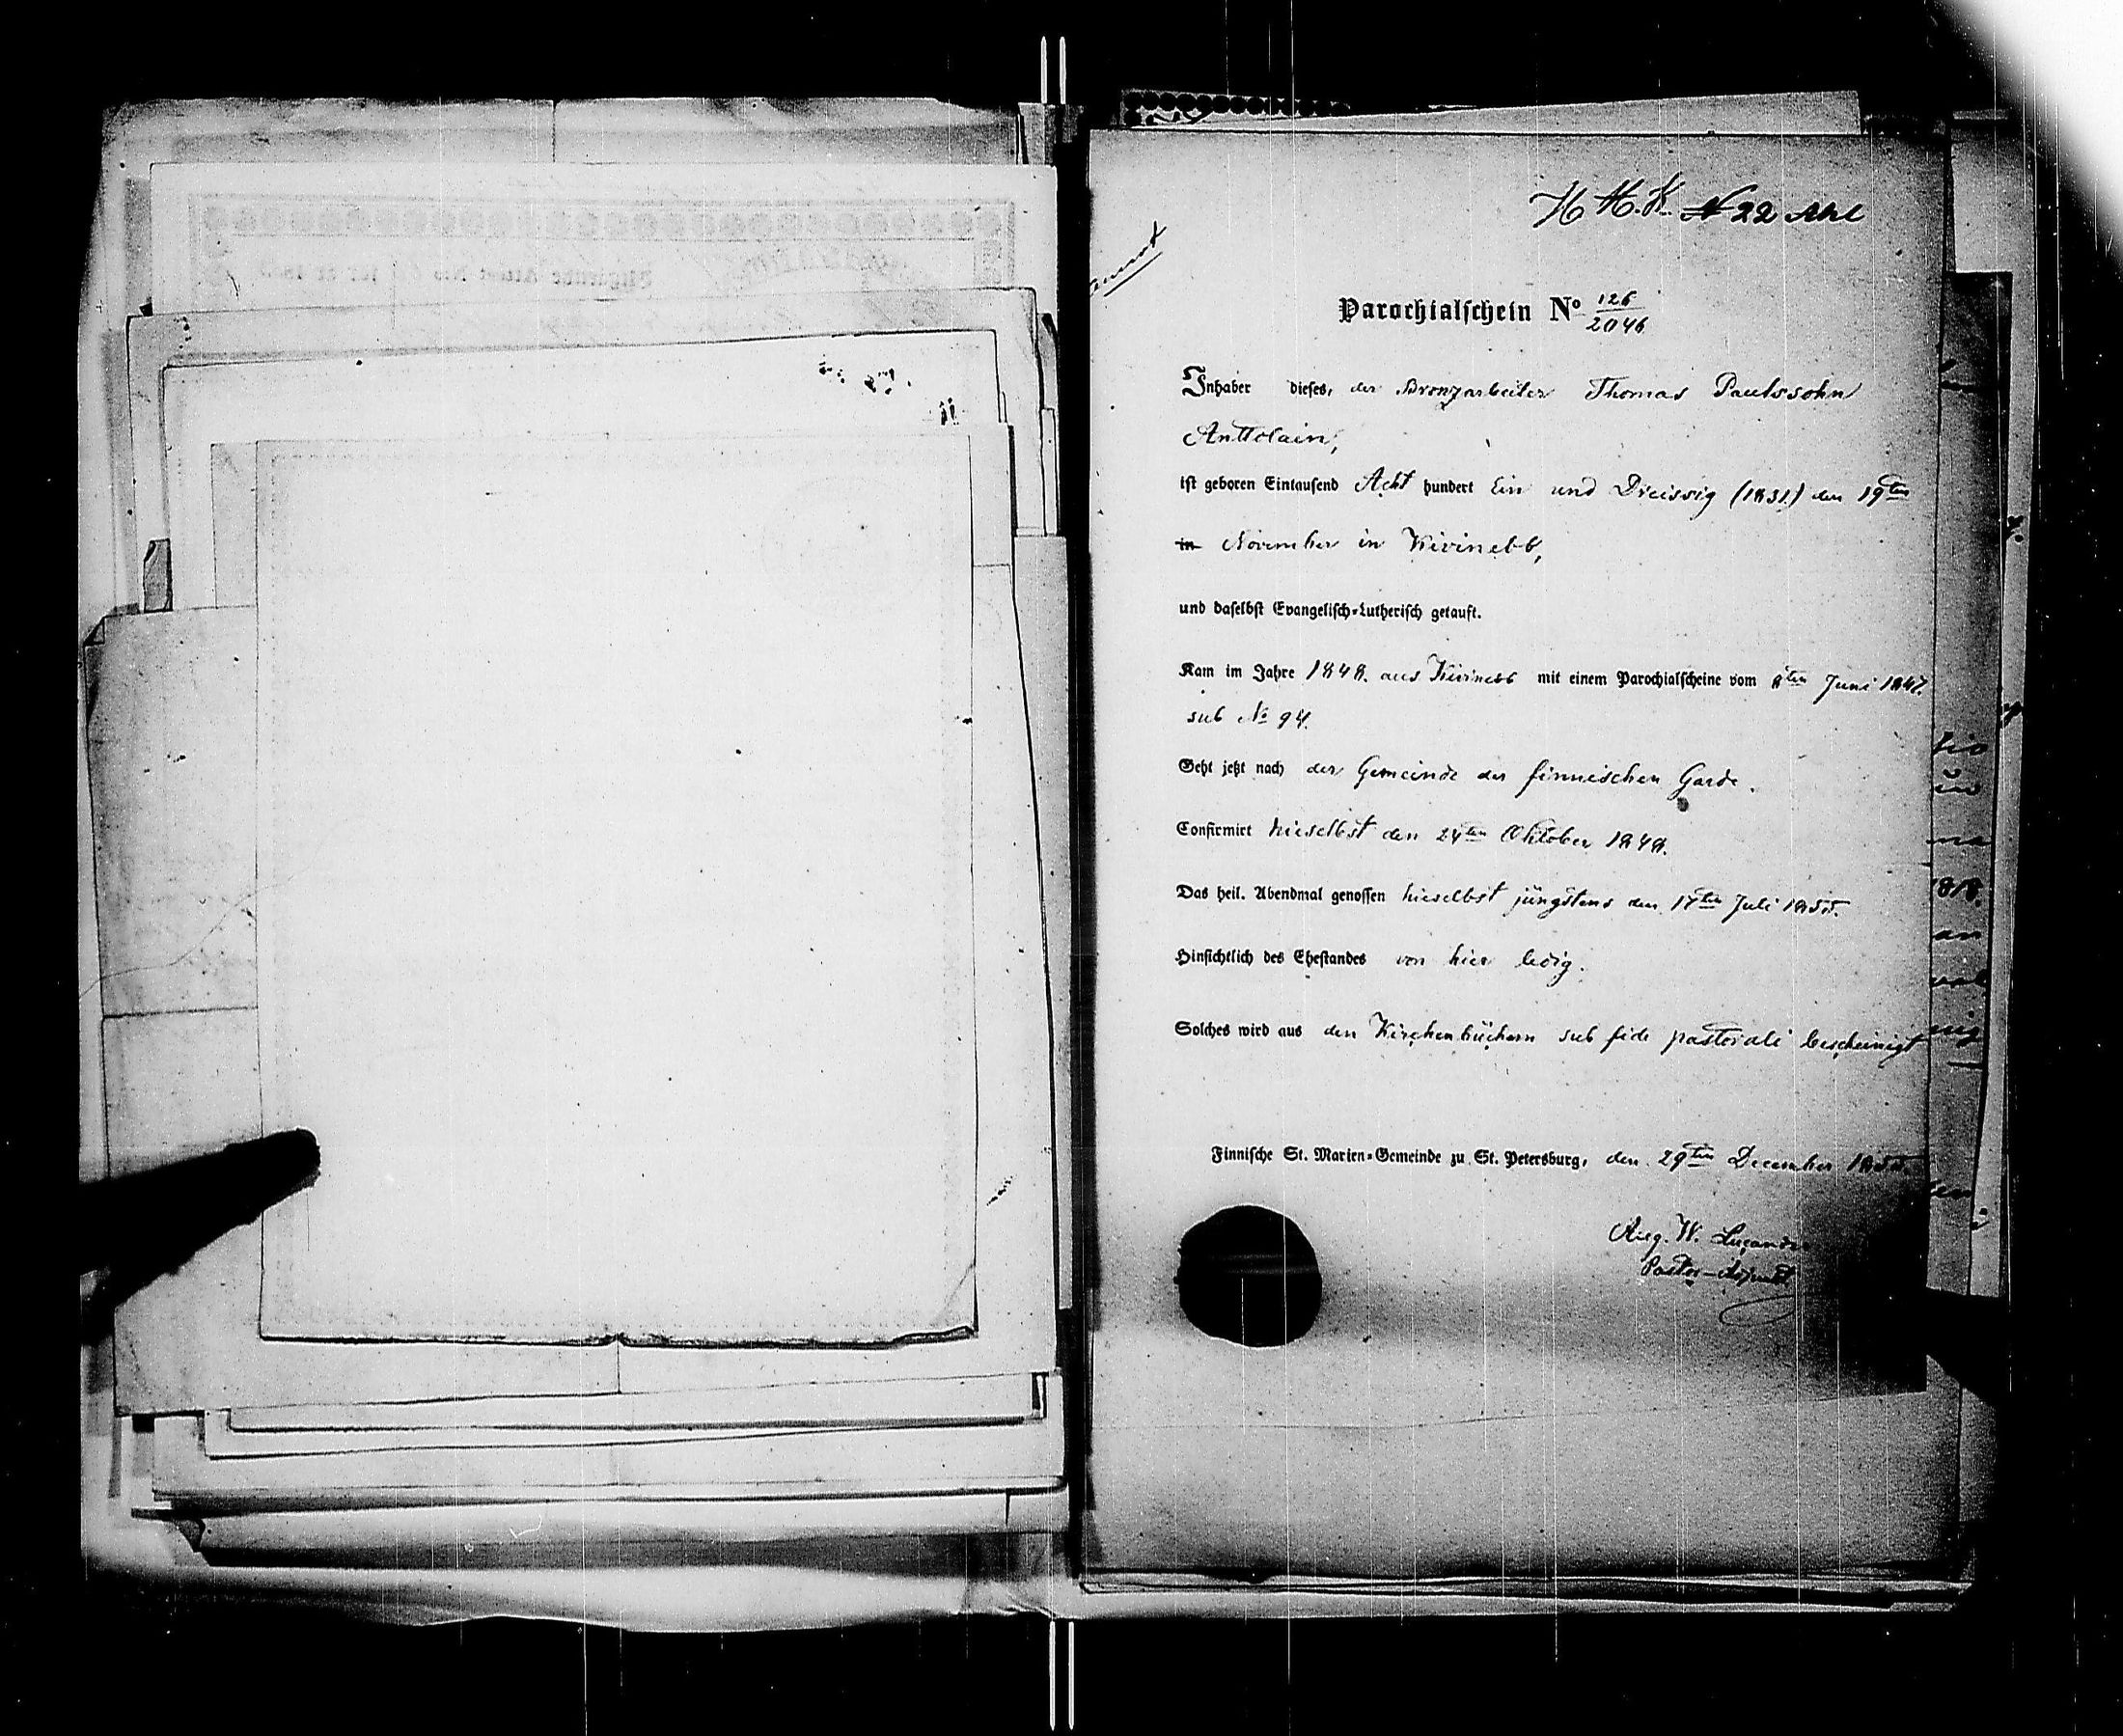 N 22
Parochialschein No 126/2046
Inhaber dieses, der Bronzarbeiter Thomas Paulssohn
Anttolain,
ist geboren Eintausend Acht hundert Ein und Dreissig (1831.) den 19ten
in November in Kivinebb,
und daselbst Evangelisch-Lutherisch getauft.
Kam im Jahre 1848. aus Kivinebb mit einem Parochialscheine vom 8ten Juni 1847.
sub No 94.
Geht jetzt nach der Gemeinde der finnischen Garde.
Confirmirt hieselbst den 24ten Oktober 1848.
Das heil. Abendmal genossen hieselbst jüngstens den 17ten Juli 1855.
Hinsichtlich des Ehestandes von hier ledig.
Solches wird aus den Kirchenbüchern sub fide pastorali bescheinigt
Finnische St. Marien-Gemeinde zu St. Petersburg, den 29ten December 1855.
Aug. W.
Pastor-Adjunkt